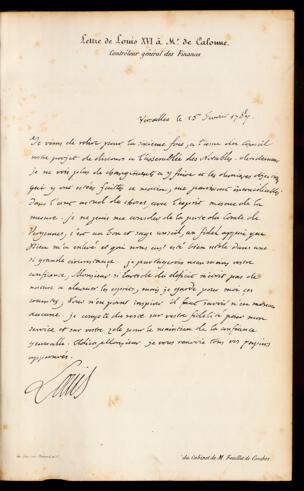 Lettre de Louis XVI à Mr. de Calonne.
Contrôleur général des Finances
Versailles le 15 fevrier 1787.
Je viens de relire pour la sixieme fois, a l'issue du conseil
votre projet de discours a l'assemblée des Notables.
je ne vois plus de changements a y faire et les dernieres objections
qui y ont étés faittes ce matin, me paraissent
dans l'etat actuel des choses, avec l'esprit meme de la
mesure. je ne puis me consoler de la perte du Comte de
Vergennes, c'est un bon et sage conseil, un fidel appui que
Dieu m'a enlevé et qui nous eut eté bien utile dans une
si grande circonstance. je persevererai neanmoins votre
confiance. Monsieur si l'aveu du deficit n'étoit pas de
nature a allarmer les esprits, mais je garde pour moi ces
craintes, vous n'en ferez inspirer il faut servir n'en
aucune. je compte du reste sur votre fidelité pour mon
service et sur votre zele pour le maintien de la confiance
generalle. Adieu, Monsieur, je vous renvoie tous vos papiers
approuvés.
Louis
du Cabinet de M. Feuillet de Conches